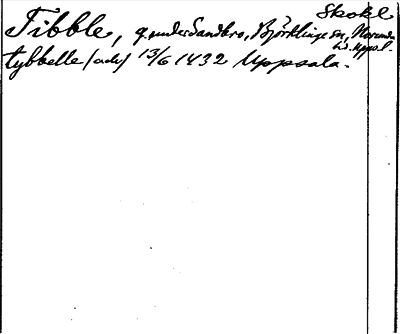 Skokl
Tibble, g. under Sandbro, Björklinge sn, Norunda
hd. Uppsl.
tybbelle (ack) 13/6 1432 Uppsala.